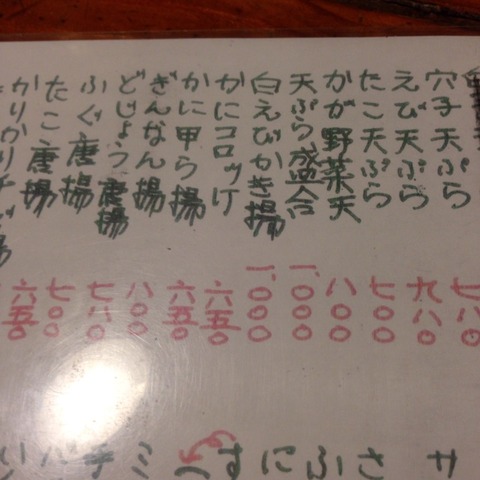 穴子天ぷら 七八〇
えび天ぷら 九八〇
たこ天ぷら 七〇〇
かが野菜天 八〇〇
天ぷら盛合 一、〇〇〇
白えびかき揚 一、〇〇〇
かにコロッケ 六五〇
かに甲ら揚 六五〇
ぎんなん揚 八〇〇
どじょう唐揚 七八〇
ふぐ唐揚 七〇〇
たこ唐揚 六五〇
かりかりチ